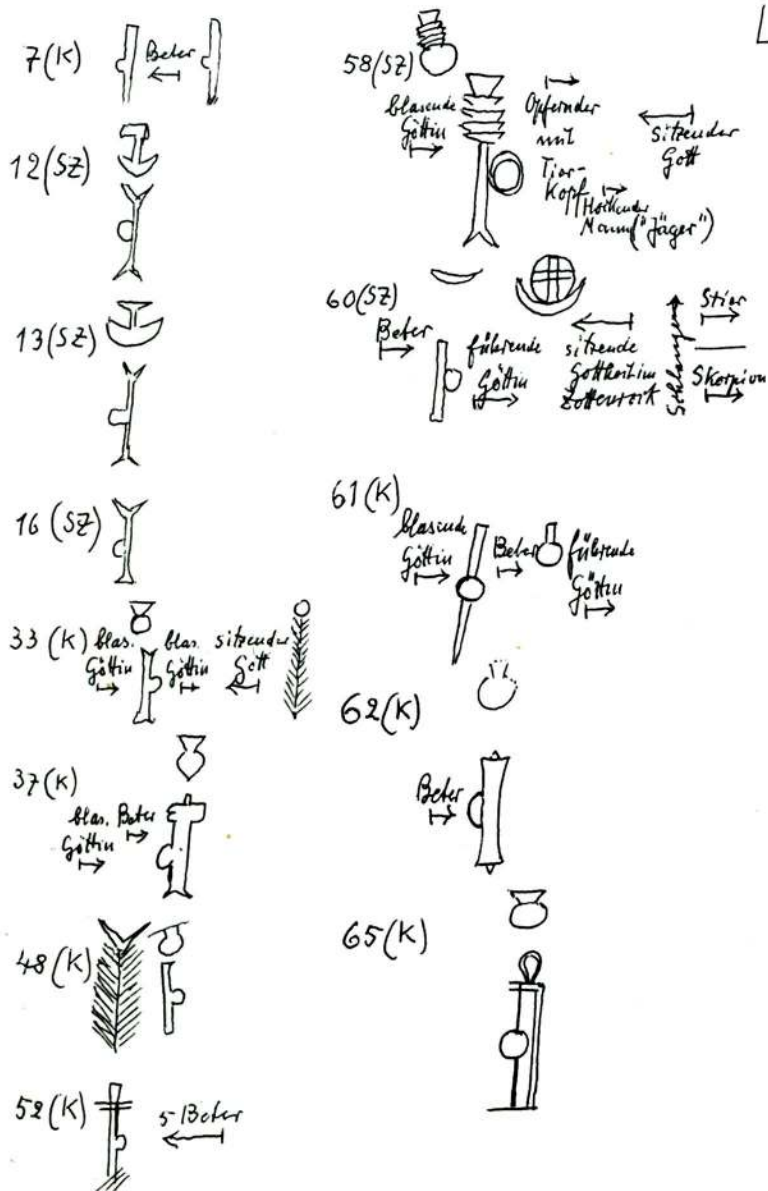 L
7(K)
Beter
12(SZ)
13(SZ)
16(SZ)
33(K)
blas.
Göttin
blas.
Göttin
sitzender
Gott
37(K)
blas.
Göttin
Beter
48(K)
52(K)
5 Beter
58(SZ)
blasende
Göttin
Opfernder
mit
Tier-
Kopf
Hockender
Mann ("Jäger")
sitzender
Gott
60(SZ)
Beter
führende
Göttin
sitzende
Gottheit im
Zottenrock
Schlangen
Stier
Skorpion
61(K)
blasende
Göttin
Beter
führende
Göttin
62(K)
Beter
65(K)